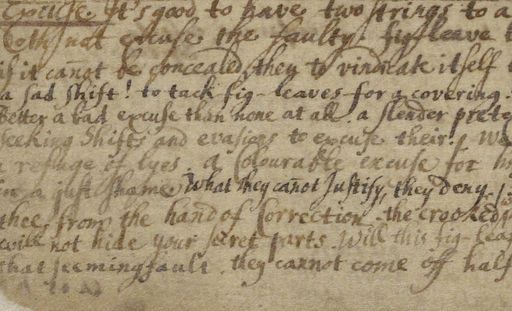 Excuse. It's good to have two strings to a
doth not excuse the faulty. fig-leave
if it cannot be concealed, they to vindicate itself
a sad shift! to tack fig-leaves for a covering.
Better a bad excuse than none at all. a slender prete
seeking shifts and evasions to excuse their
refuge of lyes. a Colourable excuse for
in a just shame. What they cannot Justify, they deny.
thee from the hand of Correction. the crooked
will not hide your secret parts. Will this fig-leaf
that seeming fault. they cannot come off half